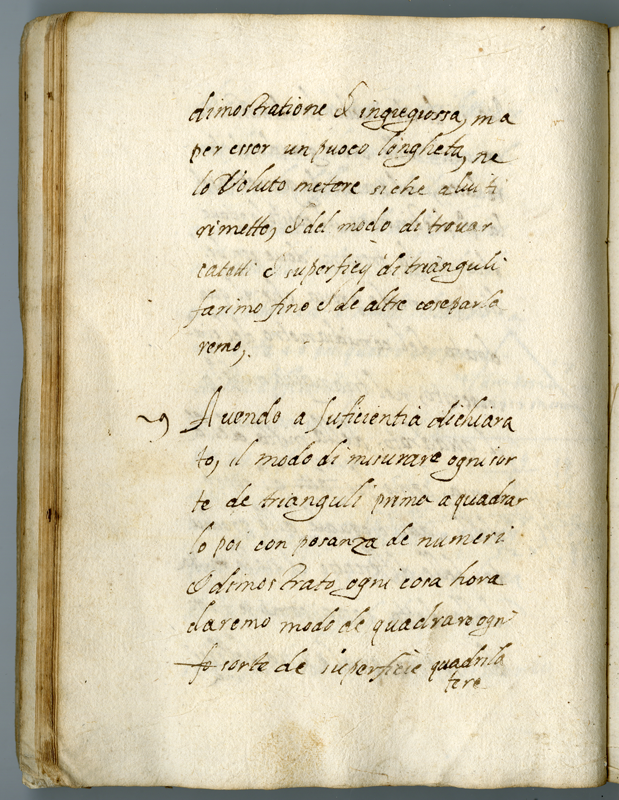 dimostratione & ingegiossa, ma
per esser un puoco longheta, ne
lo Voluto metere siche a lui ti
rimetto, & del modo di trovar
catetti e superficij di trianguli
farimo fine & de altre cose parla
remo,
Auendo a suficientia dichiara
to, il modo di misurare ogni sor
te de trianguli prima a quadrar
lo poi con posanza de numeri
& dimostrato ogni cosa hora
daremo modo de quadrare ogni
sorte de superficie quadrila
tere